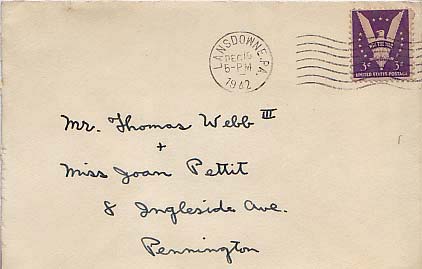 LANSDOWNE, PA.
DEC 16
5-PM
1942
WIN THE WAR
3¢ 3¢
UNITED STATES POSTAGE
Mr. Thomas Webb III
+
Miss Joan Pettit
8 Ingleside Ave.
Pennington